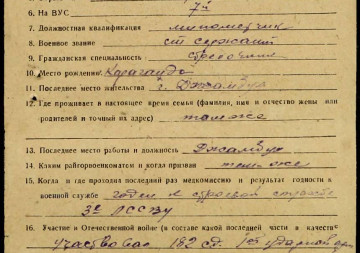 6. На ВУС 7й
7. Должностная квалификация минометчик
8. Военное звание ст сержант
9. Гражданская специальность
10. Место рождения Караганда
11. Последнее место жительства г. Джамбул
12. Где проживает в настоящее время семья (фамилия, имя и отчество жены или
родителей и точный их адрес) там же
13. Последнее место работы и должность Джамбул
14. Каким райгорвоенкоматом и когда призван тем же
15. Когда и где проходил последний раз медкомиссию и результат годности к
военной службе годен к строевой службе
16. Участие в Отечественной войне (в составе какой последней части и в качестве
участвовал 182 сд. 1й ударной